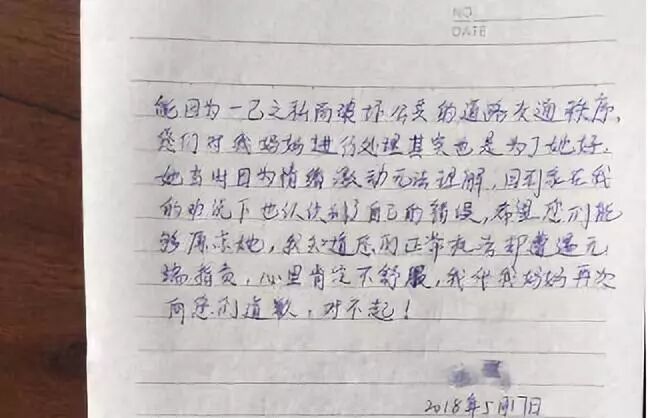 NO.
DATE
能因为一己之私而破坏公共的道路交通秩序,
您们对我妈妈进行处理其实也是为了她好.
她当时因为情绪激动无法理解,回到家在我
的劝说下也认识到了自己的错误,希望您们能
够原谅她,我知道您们正常执法却遭遇无
端指责,心里肯定不舒服,我代我妈妈再次
向您们道歉,对不起!
2018年5月17日